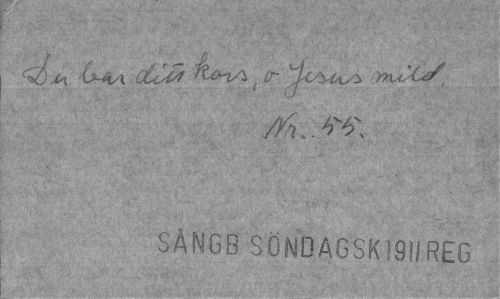 Du bar ditt kors, o Jesus mild.
Nr. 55.
SÅNGB SÖNDAGSK 1911 REG